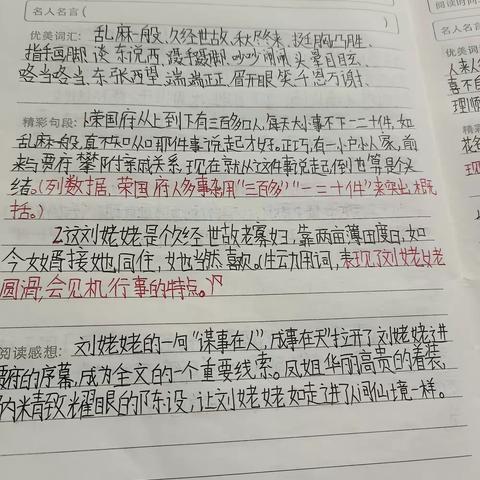 名人名言（ ）
优美词汇: 乱麻一般、久经世故、秋尽冬来、挺胸凸肚、
指手画脚、谈东说西、蹑手蹑脚、吵吵闹闹、头晕目眩、
咯当咯当、东张西望、端端正正、眉开眼笑、千恩万谢、
精彩句段: 1.荣国府从上到下有三百多口人,每天大小事不下一二十件,如
乱麻一般,真不知从那件事说起才好。正巧,有一小户人家,前
来与贾府攀附亲戚关系,现在就从这件事说起,倒也算是个头
绪。(列数据,荣国府人多事杂用"三百多""一二十件"来突出,概
括。)
2.这刘姥姥是个久经世故老寡妇,靠两亩薄田度日,如
今女婿接她同住,她当然喜欢。(生动用词,表现了刘姥姥
圆滑,会见机行事的特点。)
阅读感想: 刘姥姥的一句"谋事在人",成事在天"拉开了刘姥姥进
贾府的序幕,成为全文的一个重要线索。凤姐华丽高贵的着装,
内精致耀眼的陈设,让刘姥姥如走进了人间仙境一样。
阅读时间:
名人名言
优美词
人来人
喜不自
理顺
精彩
花
现